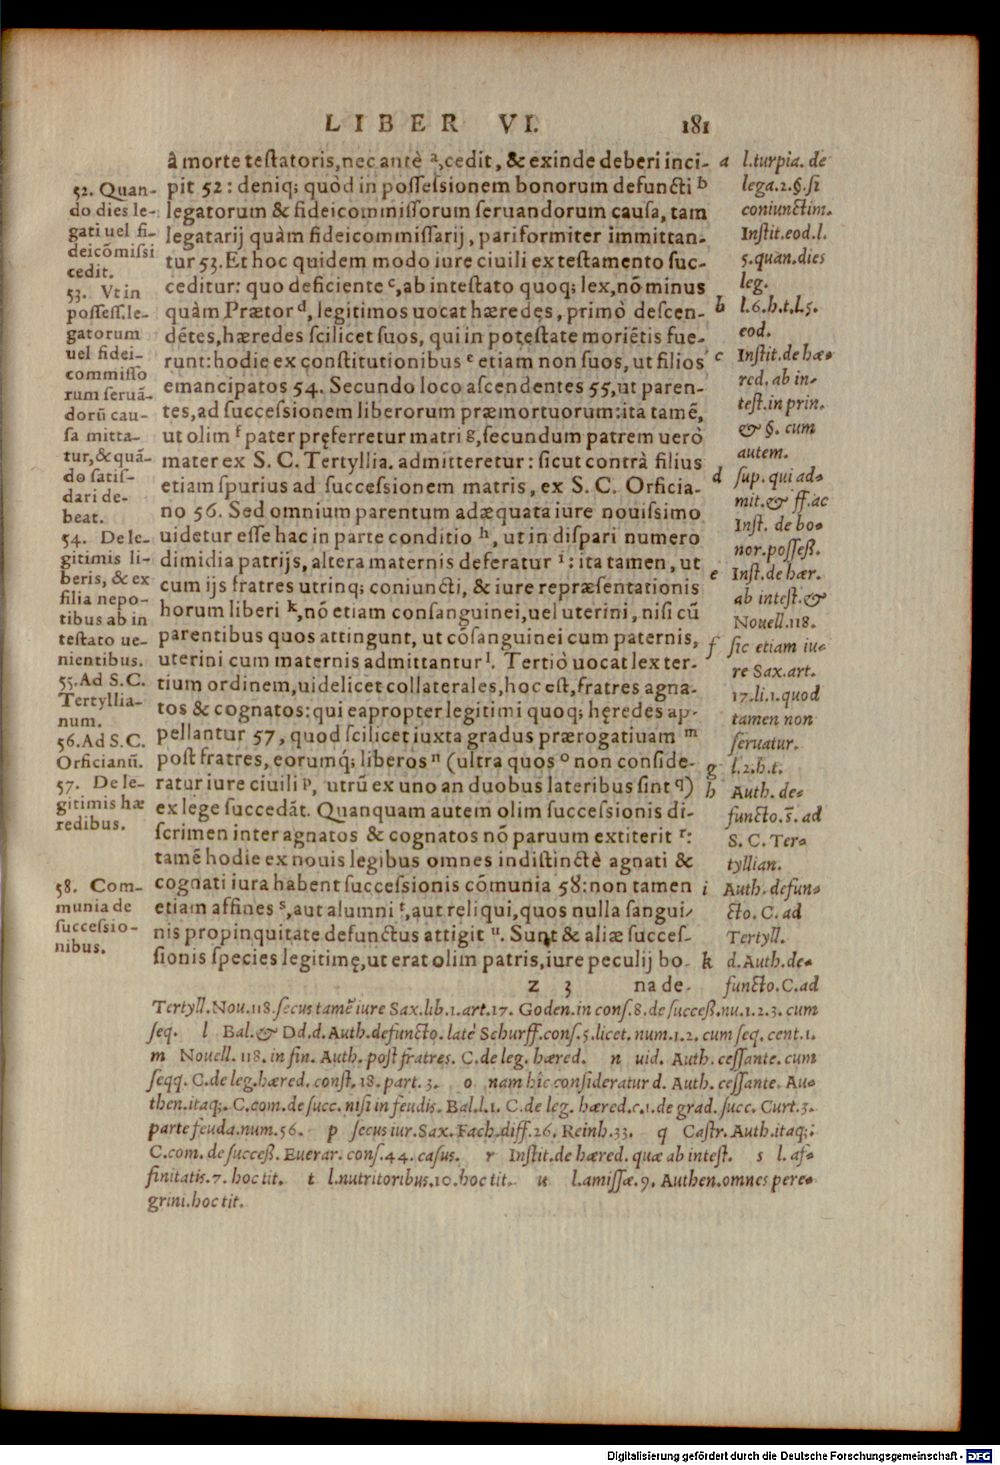 LIBER VI. 181
â morte testatoris, nec antè ᵃ, cedit, & exinde deberi inci-
pit 52: deniq; quòd in possessionem bonorum defuncti ᵇ
legatorum & fideicommissorum seruandorum causa, tam
legatarij quàm fideicommissarij, pariformiter immittan-
tur 53. Et hoc quidem modo iure ciuili ex testamento suc-
ceditur: quo deficiente ᶜ, ab intestato quoq; lex, nō minus
quàm Prætor ᵈ, legitimos uocat hæredes, primò descen-
dētes, hæredes scilicet suos, qui in potestate moriētis fue-
runt: hodie ex constitutionibus ᵉ etiam non suos, ut filios
emancipatos 54. Secundo loco ascendentes 55, ut paren-
tes, ad successionem liberorum præmortuorum: ita tamē,
ut olim ᶠ pater pręferretur matri ᵍ, secundum patrem uerò
mater ex S. C. Tertyllia. admitteretur: sicut contrà filius
etiam spurius ad successionem matris, ex S. C. Orficia-
no 56. Sed omnium parentum adæquata iure nouissimo
uidetur esse hac in parte conditio ʰ, ut in dispari numero
dimidia patrijs, altera maternis deferatur ⁱ: ita tamen, ut
cum ijs fratres utrinq; coniuncti, & iure repræsentationis
horum liberi ᵏ, nō etiam consanguinei, uel uterini, nisi cū
parentibus quos attingunt, ut cōsanguinei cum paternis,
uterini cum maternis admittantur ˡ. Tertiò uocat lex ter-
tium ordinem, uidelicet collaterales, hoc est, fratres agna-
tos & cognatos: qui eapropter legitimi quoq; hęredes ap-
pellantur 57, quod scilicet iuxta gradus prærogatiuam ᵐ
post fratres, eorumq́; liberos ⁿ (ultra quos ᵒ non conside-
ratur iure ciuili ᵖ, utrū ex uno an duobus lateribus sint q)
ex lege succedāt. Quanquam autem olim successionis di-
scrimen inter agnatos & cognatos nō paruum extiterit ʳ:
tamē hodie ex nouis legibus omnes indistinctè agnati &
cognati iura habent successionis cōmunia 58: non tamen
etiam affines ˢ, aut alumni ᵗ, aut reliqui, quos nulla sangui-
nis propinquitate defunctus attigit ᵘ. Sunt & aliæ succes-
sionis species legitimę, ut erat olim patris, iure peculij bo-
z 3 na de
52. Quan-
do dies le-
gati uel fi-
deicōmissi
cedit.
53. Vt in
possess. le-
gatorum
uel fidei-
commisso
rum seruā-
dorū cau-
sa mitta-
tur, & quā-
do satis-
dari de-
beat.
54. De le-
gitimis li-
beris, & ex
filia nepo-
tibus ab in
testato ue-
nientibus.
55. Ad S. C.
Tertyllia-
num.
56. Ad S. C.
Orficianū.
57. De le-
gitimis hæ
redibus.
58. Com-
munia de
successio-
nibus.
a l. turpia. de
lega. 2. §. si
coniunctim.
Instit. eod. l.
5. quan. dies
leg.
b l. 6. h. t. l. 5.
eod.
c Instit. de hæ-
red. ab in-
test. in prin.
& §. cum
autem.
d sup. qui ad-
mit. & ff. ac
Inst. de bo-
nor. posseß.
e Inst. de hær.
ab intest. &
Nouell. 118.
f sic etiam iu-
re Sax. art.
17. li. 1. quod
tamen non
seruatur.
g l. 2. h. t.
h Auth. de-
functo. s̄. ad
S. C. Ter-
tyllian.
i Auth. defun-
cto. C. ad
Tertyll.
k d. Auth. de-
functo. C. ad
Tertyll. Nou. 118. secus tamē iure Sax. lib. 1. art. 17. Goden. in cons. 8. de succeß. nu. 1. 2. 3. cum
seq. l Bal. & Dd. d. Auth. defuncto. latè Schurff. cons. 5. licet. num. 1. 2. cum seq. cent. 1.
m Nouell. 118. in fin. Auth. post fratres. C. de leg. hæred. n uid. Auth. cessante. cum
seqq. C. de leg. hæred. const. 18. part. 3. o nam hîc consideratur d. Auth. cessante. Au-
then. itaq;. C. com. de succ. nisi in feudis. Bal. l. 1. C. de leg. hæred. c. 1. de grad. succ. Curt. 3.
parte feuda. num. 56. p secus iur. Sax. Fach. diff. 26. Reinh. 33. q Castr. Auth. itaq;.
C. com. de succeß. Euerar. cons. 44. casus. r Instit. de hæred. quæ ab intest. s l. af-
finitatis. 7. hoc tit. t l. nutritoribus. 10. hoc tit. u l. amissæ. 9. Authen. omnes pere-
grini. hoc tit.
Digitalisierung gefördert durch die Deutsche Forschungsgemeinschaft - DFG